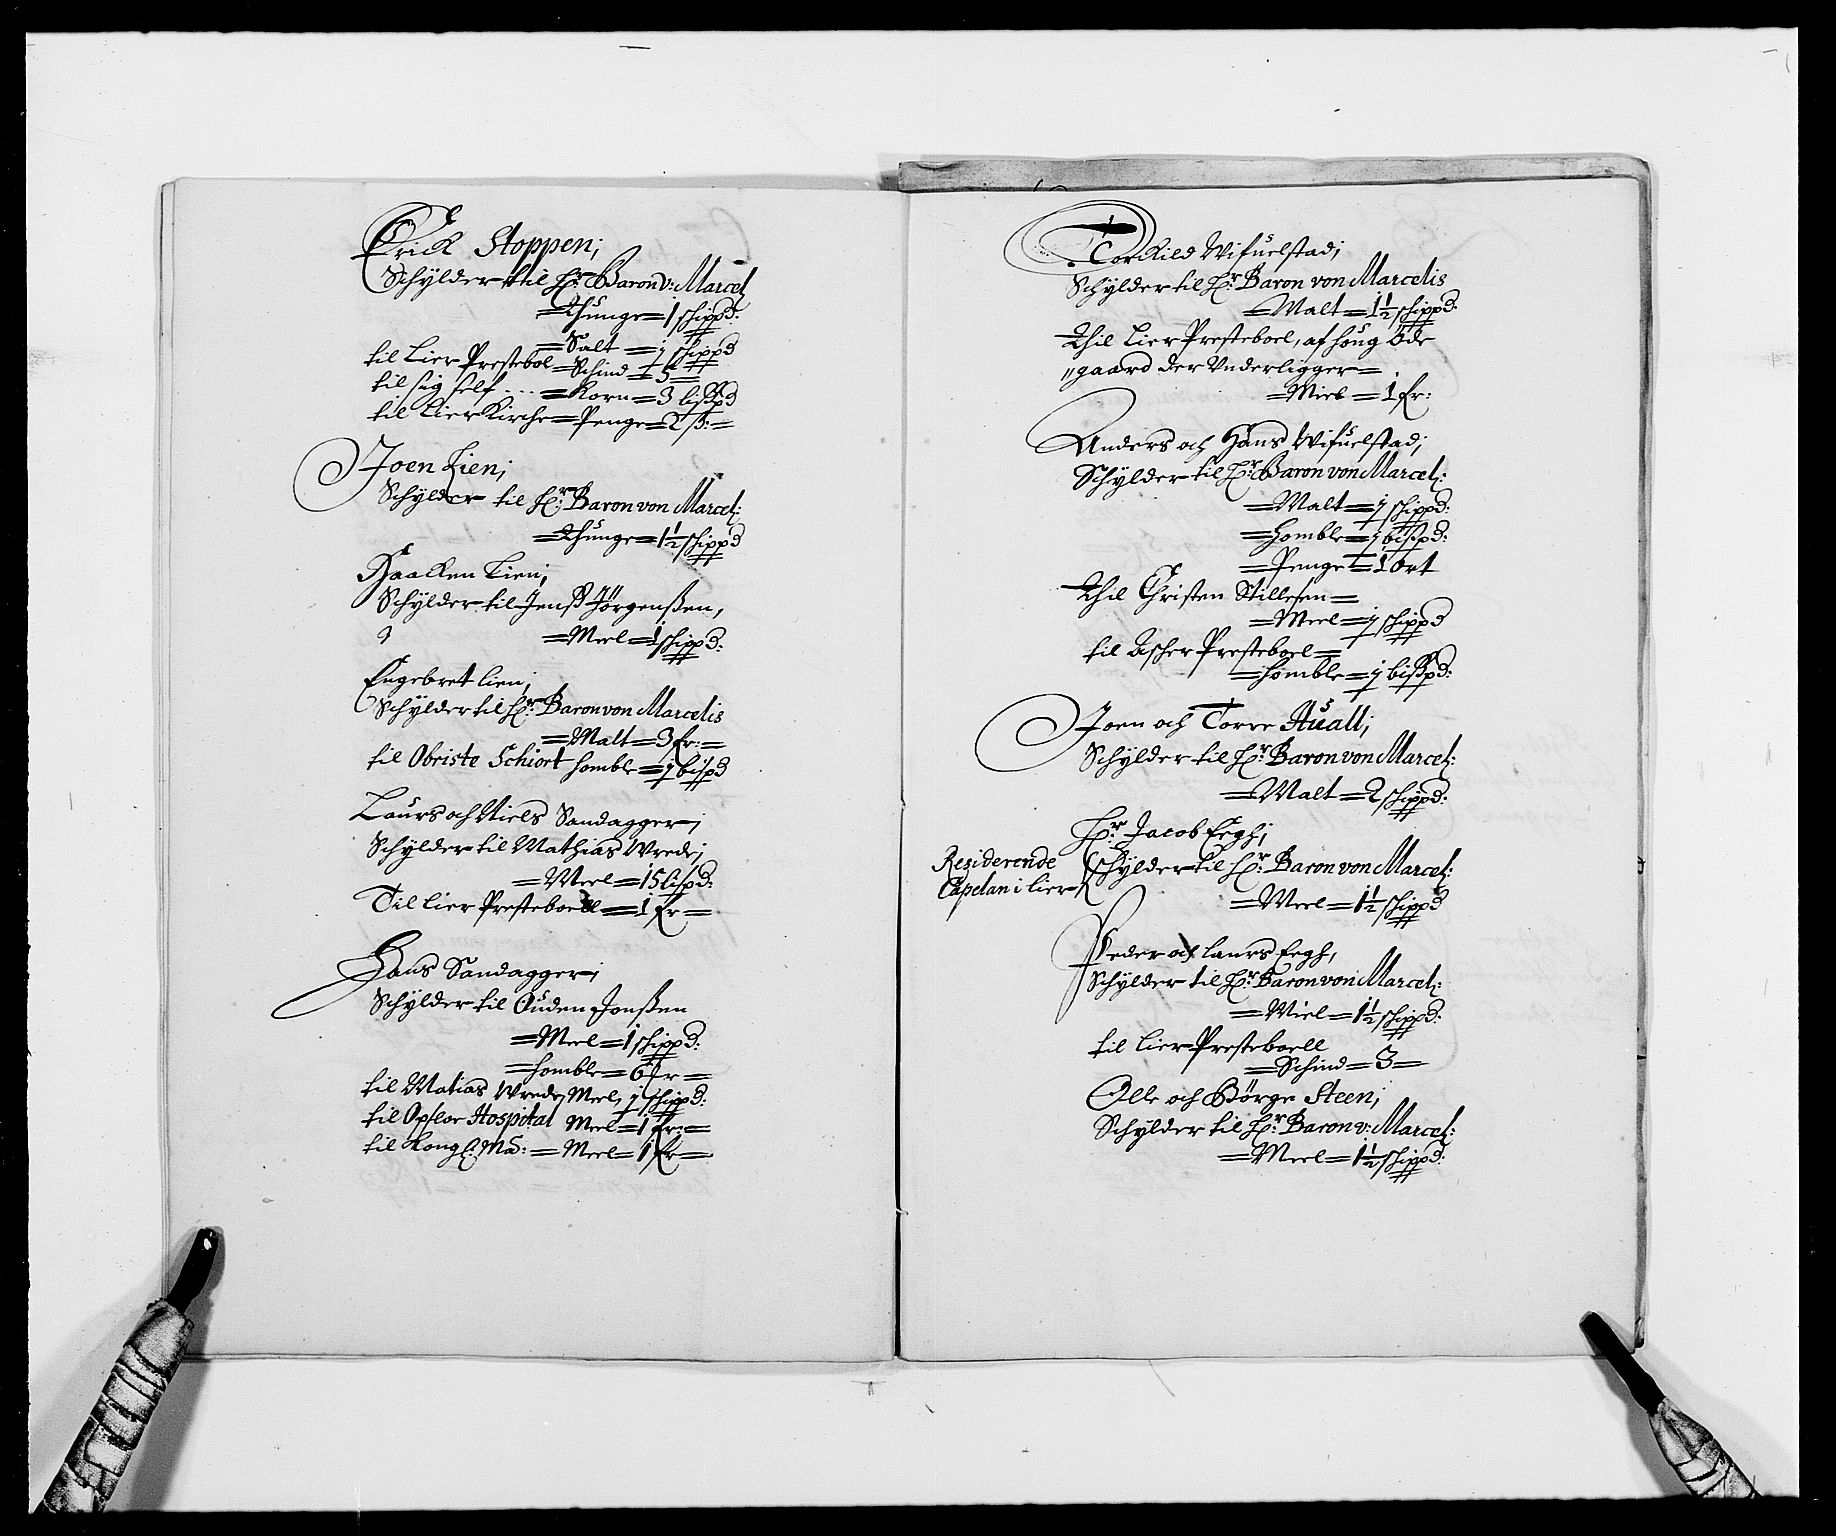 Erick Stoppen;
Schÿlder till Hr: Baron v: Marcel
=Thunge=1 schippd:
=Salt=1 schippd
til Lier Prestebol=Schind=5=
til sig self...=Korn=3 lispd
til Lier Kirche=Penge=2 ß:=
Joen Lien;
Schÿlder til Hr: Baron von Marcel:
=Thunge=1½ schippd
Haacken Lien;
Schÿlder til Jenß Jörgenßen,
=Meel=1 schippd:
Engebret lien;
Schÿlder til Hr: Baron von Marcelis
=Malt=3 fr:=
til Obriste Schiort homble=1 bispd
Laurs och Niels Sandagger;
Schÿlder til Mathias Wrede;
=Meel=15 lispd:
Til Lier Presteboell=1 fr=
Hans Sandagger;
Schÿlder til Ouden Jonßen
=Meel=1 schippd:
=homble=6 fr=
til Matias Wrede, Meel, 1 schippd:
til Opsloe Hospital Meel=1 fr:=
til Kongl: Ma: =Meel=1 fr=
Torkild Wifuelstad;
Schÿlder til Hr: Baron von Marcelis
=Malt=1½ schippd:
Thil Lier Presteboel, af höug öde
"gaard der Underligger=
=Miel=1 fr:
Anders och Hans Wifuelstad;
Schÿlder til Hr: Baron von Marcel:
=Malt=1 schippd:
=homble=1 bißpd:
=Penge=1 ort
Thil Christen Stillesen=
=Meel=1 schippd
til Ascher Presteboel=
=homble=1 bißpd:
Joen och Torre Huall;
Schÿlder til Hr: Baron von Marcel:
=Malt=2 schippd:
Hr: Jacob Eegh;
Residerende
Capelan i lier
Schÿlder til Hr: Baron von Marcel:
=Meel=1½ schippd
Peder och laurs Eegh,
Schÿlder til Hr: Baron von Marcel:
=Miel=1½ schippd:
til Lier Presteboell
=Schind=3=
Olle och Börge Steen;
Schÿlder til Hr: Baron v: Marcel:
=Meel=1½ schippd: